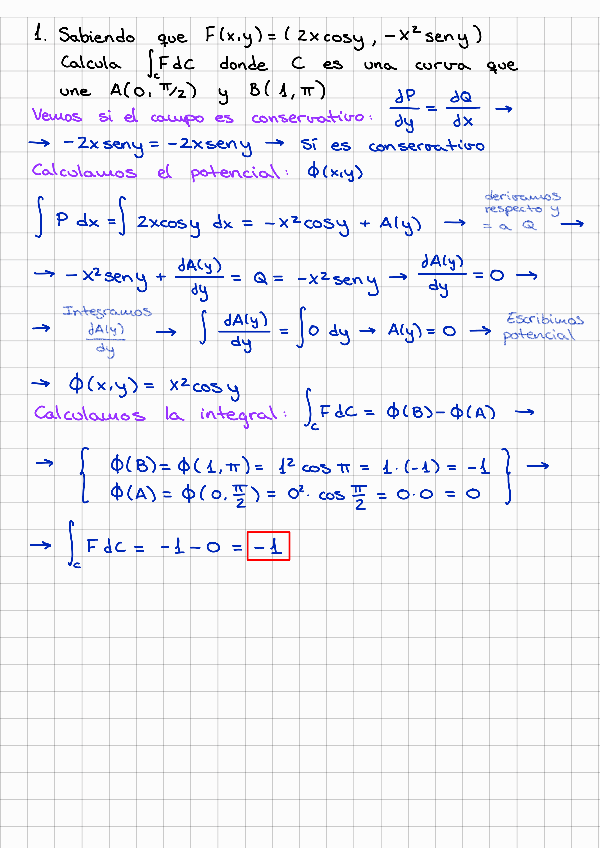 1. Sabiendo que F(x,y) = (2xcosy, -x² seny)
Calcula ∫_C F dC donde C es una curva que
une A(0, π/2) y B(1, π)
Vemos si el campo es conservativo: dP/dy = dQ/dx →
→ -2xseny = -2xseny → Sí es conservativo
Calculamos el potencial: ϕ(x,y)
∫ P dx = ∫ 2xcosy dx = -x²cosy + A(y) → derivamos respecto y = a Q →
→ -x²seny + dA(y)/dy = Q = -x²seny → dA(y)/dy = 0 →
→ Integramos dA(y)/dy → ∫ dA(y)/dy = ∫ 0 dy → A(y) = 0 → Escribimos potencial
→ ϕ(x,y) = x²cosy
Calculamos la integral: ∫_C F dC = ϕ(B) - ϕ(A) →
→ { ϕ(B) = ϕ(1, π) = 1² cos π = 1·(-1) = -1
ϕ(A) = ϕ(0, π/2) = 0²· cos π/2 = 0·0 = 0 } →
→ ∫_C F dC = -1 - 0 = -1